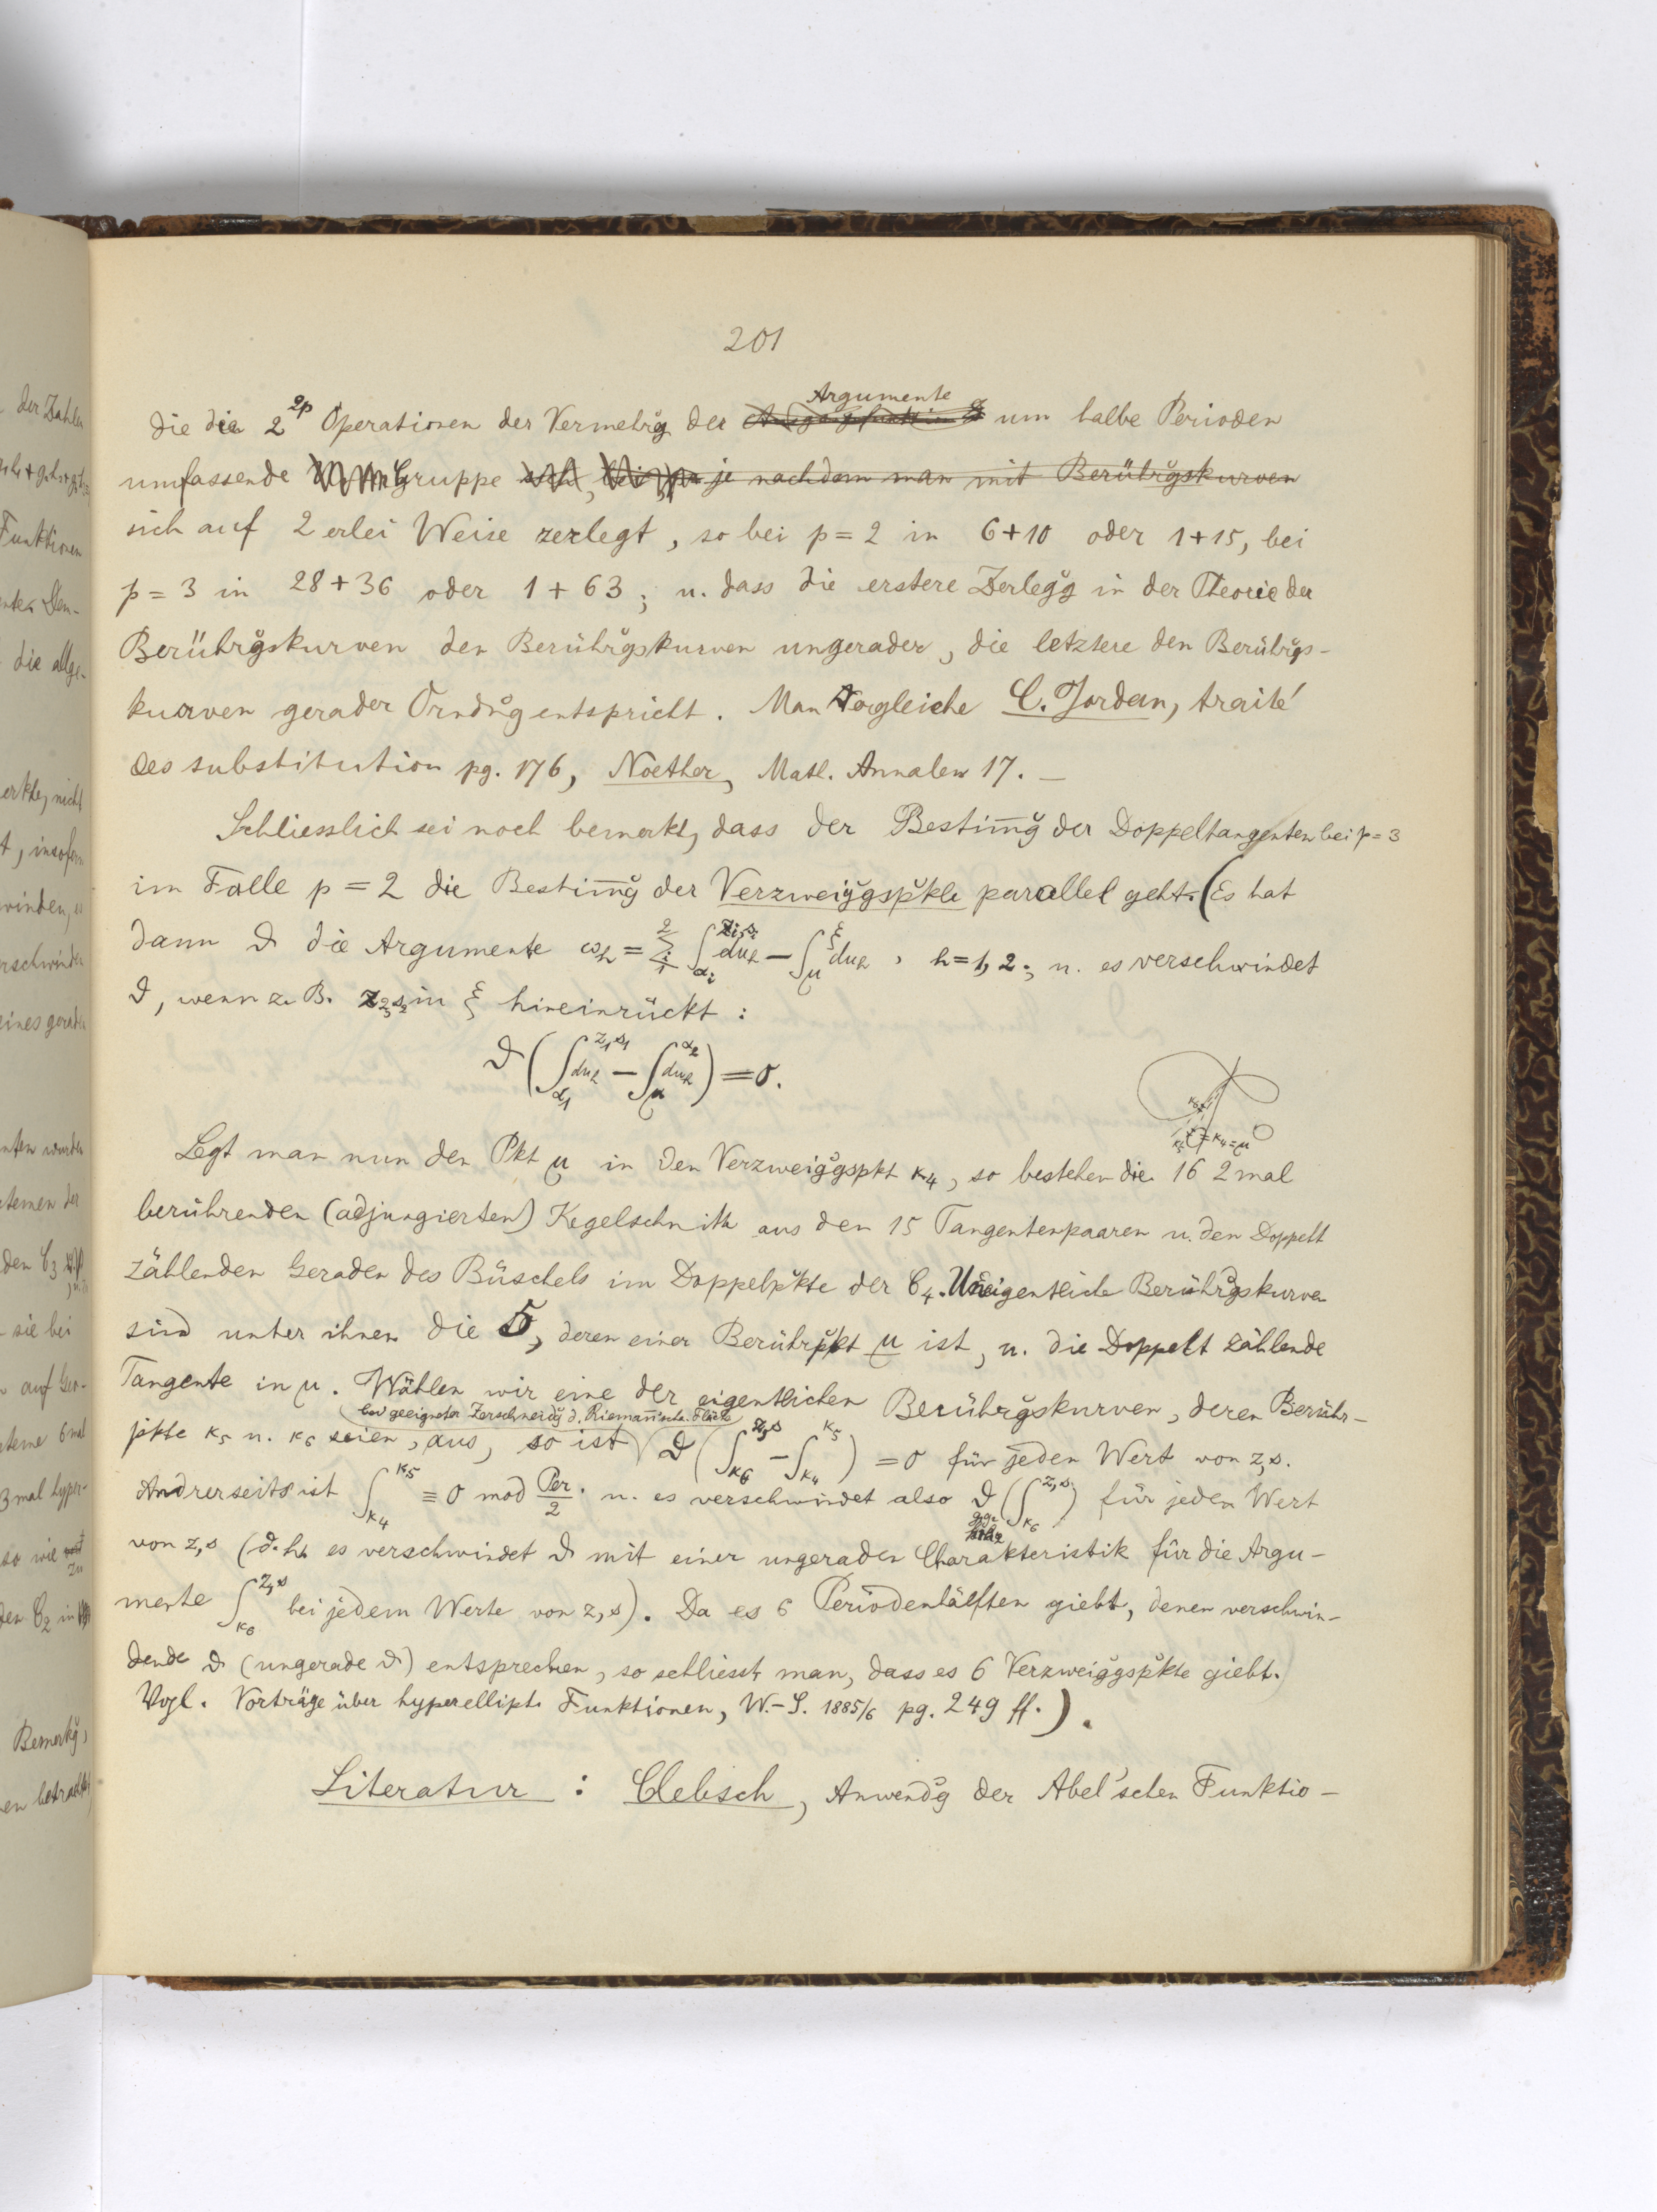 der Zahlen
Funktionen
die allge-
erkte, nicht
t, insofern
winden, es
rschwinden
eines geraden
nten wurden
stemen der
sie bei
auf
3 mal hyper-
so wie
zu
Bemerkg,
en betrachtet
201
Argumente
die die 2^{2p} Operationen der Vermehrg der um halbe Perioden
umfassende Gruppe je nachdem man mit Berührgskurven
sich auf 2 erlei Weise zerlegt, so bei p = 2 in 6+10 oder 1+15, bei
p = 3 in 28+36 oder 1+63; u. dass die erstere Zerlegg in der Theorie der
Berührgskurven den Berührgskurven ungerader, die letztere den Berührgs-
kurven gerader Ordng entspricht. Man vergleiche C. Jordan, traité
des substitution pg. 176, Noether, Math. Annalen 17. —
Schliesslich sei noch bemerkt, dass der Bestim̅g der Doppeltangenten bei p=3
im Falle p = 2 die Bestim̅g der Verzweiggspkte parallel geht. (Es hat
dann ϑ die Argumente ω_h = Σ_{i=1}^{2} ∫_{α_i}^{z_i,s_i} du_h − ∫_μ^ξ du_h, h=1,2; u. es verschwindet
ϑ, wenn z. B. z_2 s_2 in ξ hineinrückt:
ϑ(∫_{α_1}^{z_1 s_1} du_h − ∫_μ^{α_2} du_h) = 0.
κ_4=μ
Legt man nun den Pkt μ in den Verzweiggspkt κ_4, so bestehen die 16 2 mal
berührenden (adjungierten) Kegelschnitte aus den 15 Tangentenpaaren u. den Doppelt
zählenden Geraden des Büschels im Doppelpkte der C_4. Uneigentliche Berührgskurven
sind unter ihnen die 5, deren einer Berührpkt μ ist, u. die Doppelt zählende
Tangente in μ. Wählen wir eine der eigentlichen Berührgskurven, deren Berühr-
bei geeigneter Zerschneidg d. Riemannsche. Fläche
pkte κ_5 u. κ_6 seien, aus, so ist ϑ(∫_{κ_6}^{z,s} − ∫_{κ_4}^{κ_5}) = 0 für jeden Wert von z,s.
Andrerseits ist ∫_{κ_4}^{κ_5} ≡ 0 mod Per/2. u. es verschwindet also ϑ(∫_{κ_6}^{z,s}) für jeden Wert
von z,s (d.h. es verschwindet ϑ mit einer ungeraden Charakteristik für die Argu-
mente ∫_{κ_6}^{z,s} bei jedem Werte von z,s). Da es 6 Periodenhälften giebt, denen verschwin-
dende ϑ (ungerade ϑ) entsprechen, so schliesst man, dass es 6 Verzweiggspkte giebt.
Vgl. Vorträge über hyperellipt. Funktionen, W.-S. 1885/6 pg. 249 ff.).
Literatur : Clebsch, Anwendg der Abel'schen Funktio-